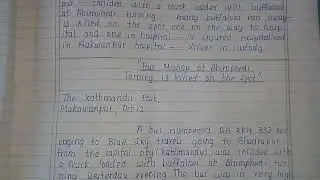 put — collided with a truck loaded with buffaloes
at Bhimphedi turning — many buffaloes ran away
is killed on the spot, one on the way to hosp
ital and one in hospital — 14 injured hospitalized
in Makwanpur hospital — driver in custody.
"Bus Mishap at Bhimphedi
Turning, 13 killed on the Spot"
The Kathmandu Post,
Makawanpur, Oct 12
A bus numbered BA 2KH 332 bel
onging to Blue Sky Travels going to Bharatpur
from the capital city (Kathmandu) was collided with
a truck loaded with buffaloes at Bhimphedi tur
ning yesterday evening. The bus was in very high